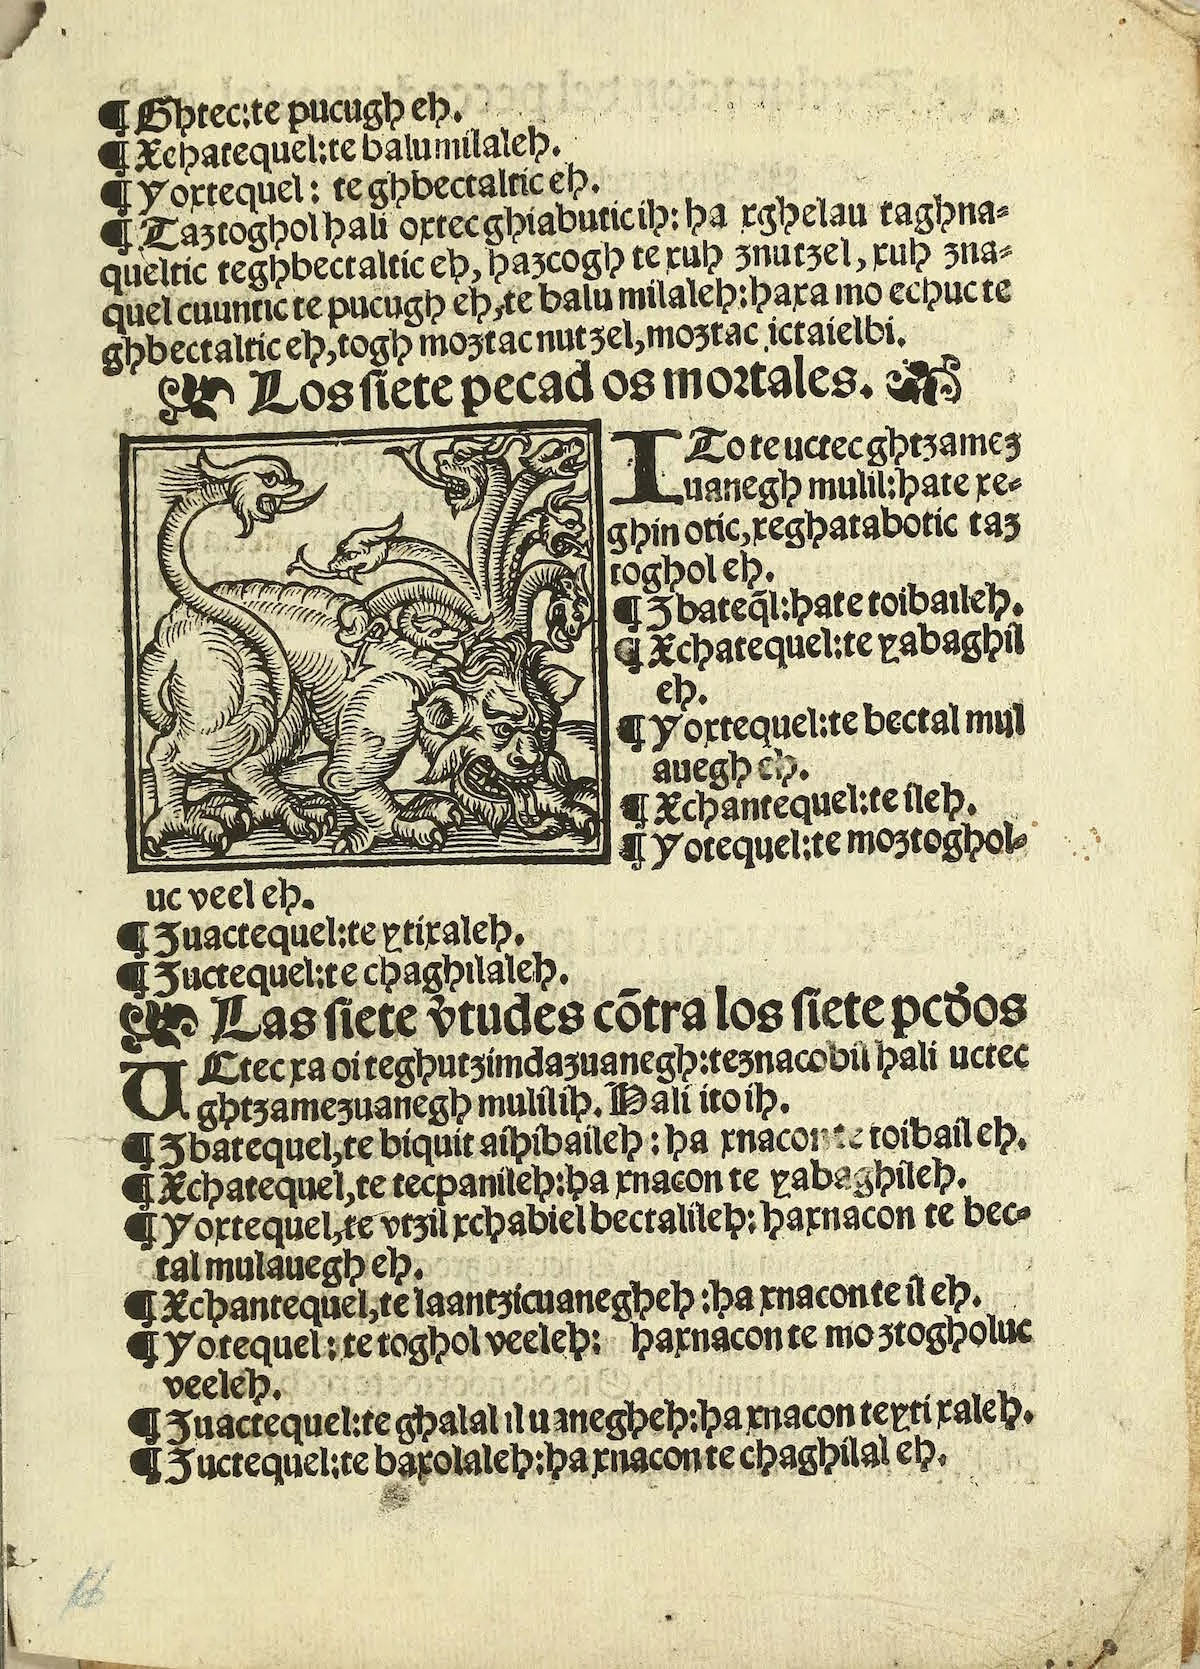 ¶ Ghtec:te pucugh eh.
¶ Xchatequel:te balumilaleh.
¶ Yoxtequel: te ghbectaltic eh.
¶ Taztoghol hali oxtec ghiabutic ih: ha xghelau taghna=
queltic teghbectaltic eh, hazcogh te xuh znutzel, xuh zna=
quel cuuntic te pucugh eh, te balu milaleh: haxa mo echuc te
ghbectaltic eh, togh moztac nutzel, moztac ictaielbi.
Los siete pecad os mortales.
ITo te uctec ghtzamez
uanegh mulil: hate xe=
ghin otic, xeghatabotic taz
toghol eh.
¶ Zbateq̃l: hate toibaileh.
¶ Xchatequel:te yabaghil
eh.
¶ Yoxtequel:te bectal mul
auegh eh.
¶ Xchantequel:te ileh.
¶ Yotequel:te moztoghol=
uc veel eh.
¶ Zuactequel:te ytixaleh.
¶ Zuctequel:te chaghilaleh.
Las siete v̄tudes cōtra los siete pcd̄os
UCtec xa oi teghutzimdazuanegh: teznacobil hali uctec
ghtzamezuanegh mulilih. Hali ito ih.
¶ Zbatequel, te biquit aihibaileh: ha xnacon te toibail eh.
¶ Xchatequel, te tecpanileh: ha xnacon te yabaghileh.
¶ Yoxtequel, te vtzil xchabiel bectalileh: haxnacon te bec=
tal mulauegh eh.
¶ Xchantequel, te laantzicuanegheh: ha xnacon te il eh.
¶ Yotequel: te toghol veeleh: haxnacon te mo ztogholuc
veeleh.
¶ Zuactequel:te ghalal il uanegheh: ha xnacon te yti xaleh.
¶ Zuctequel:te baxolaleh: ha xnacon te chaghilal eh.
16